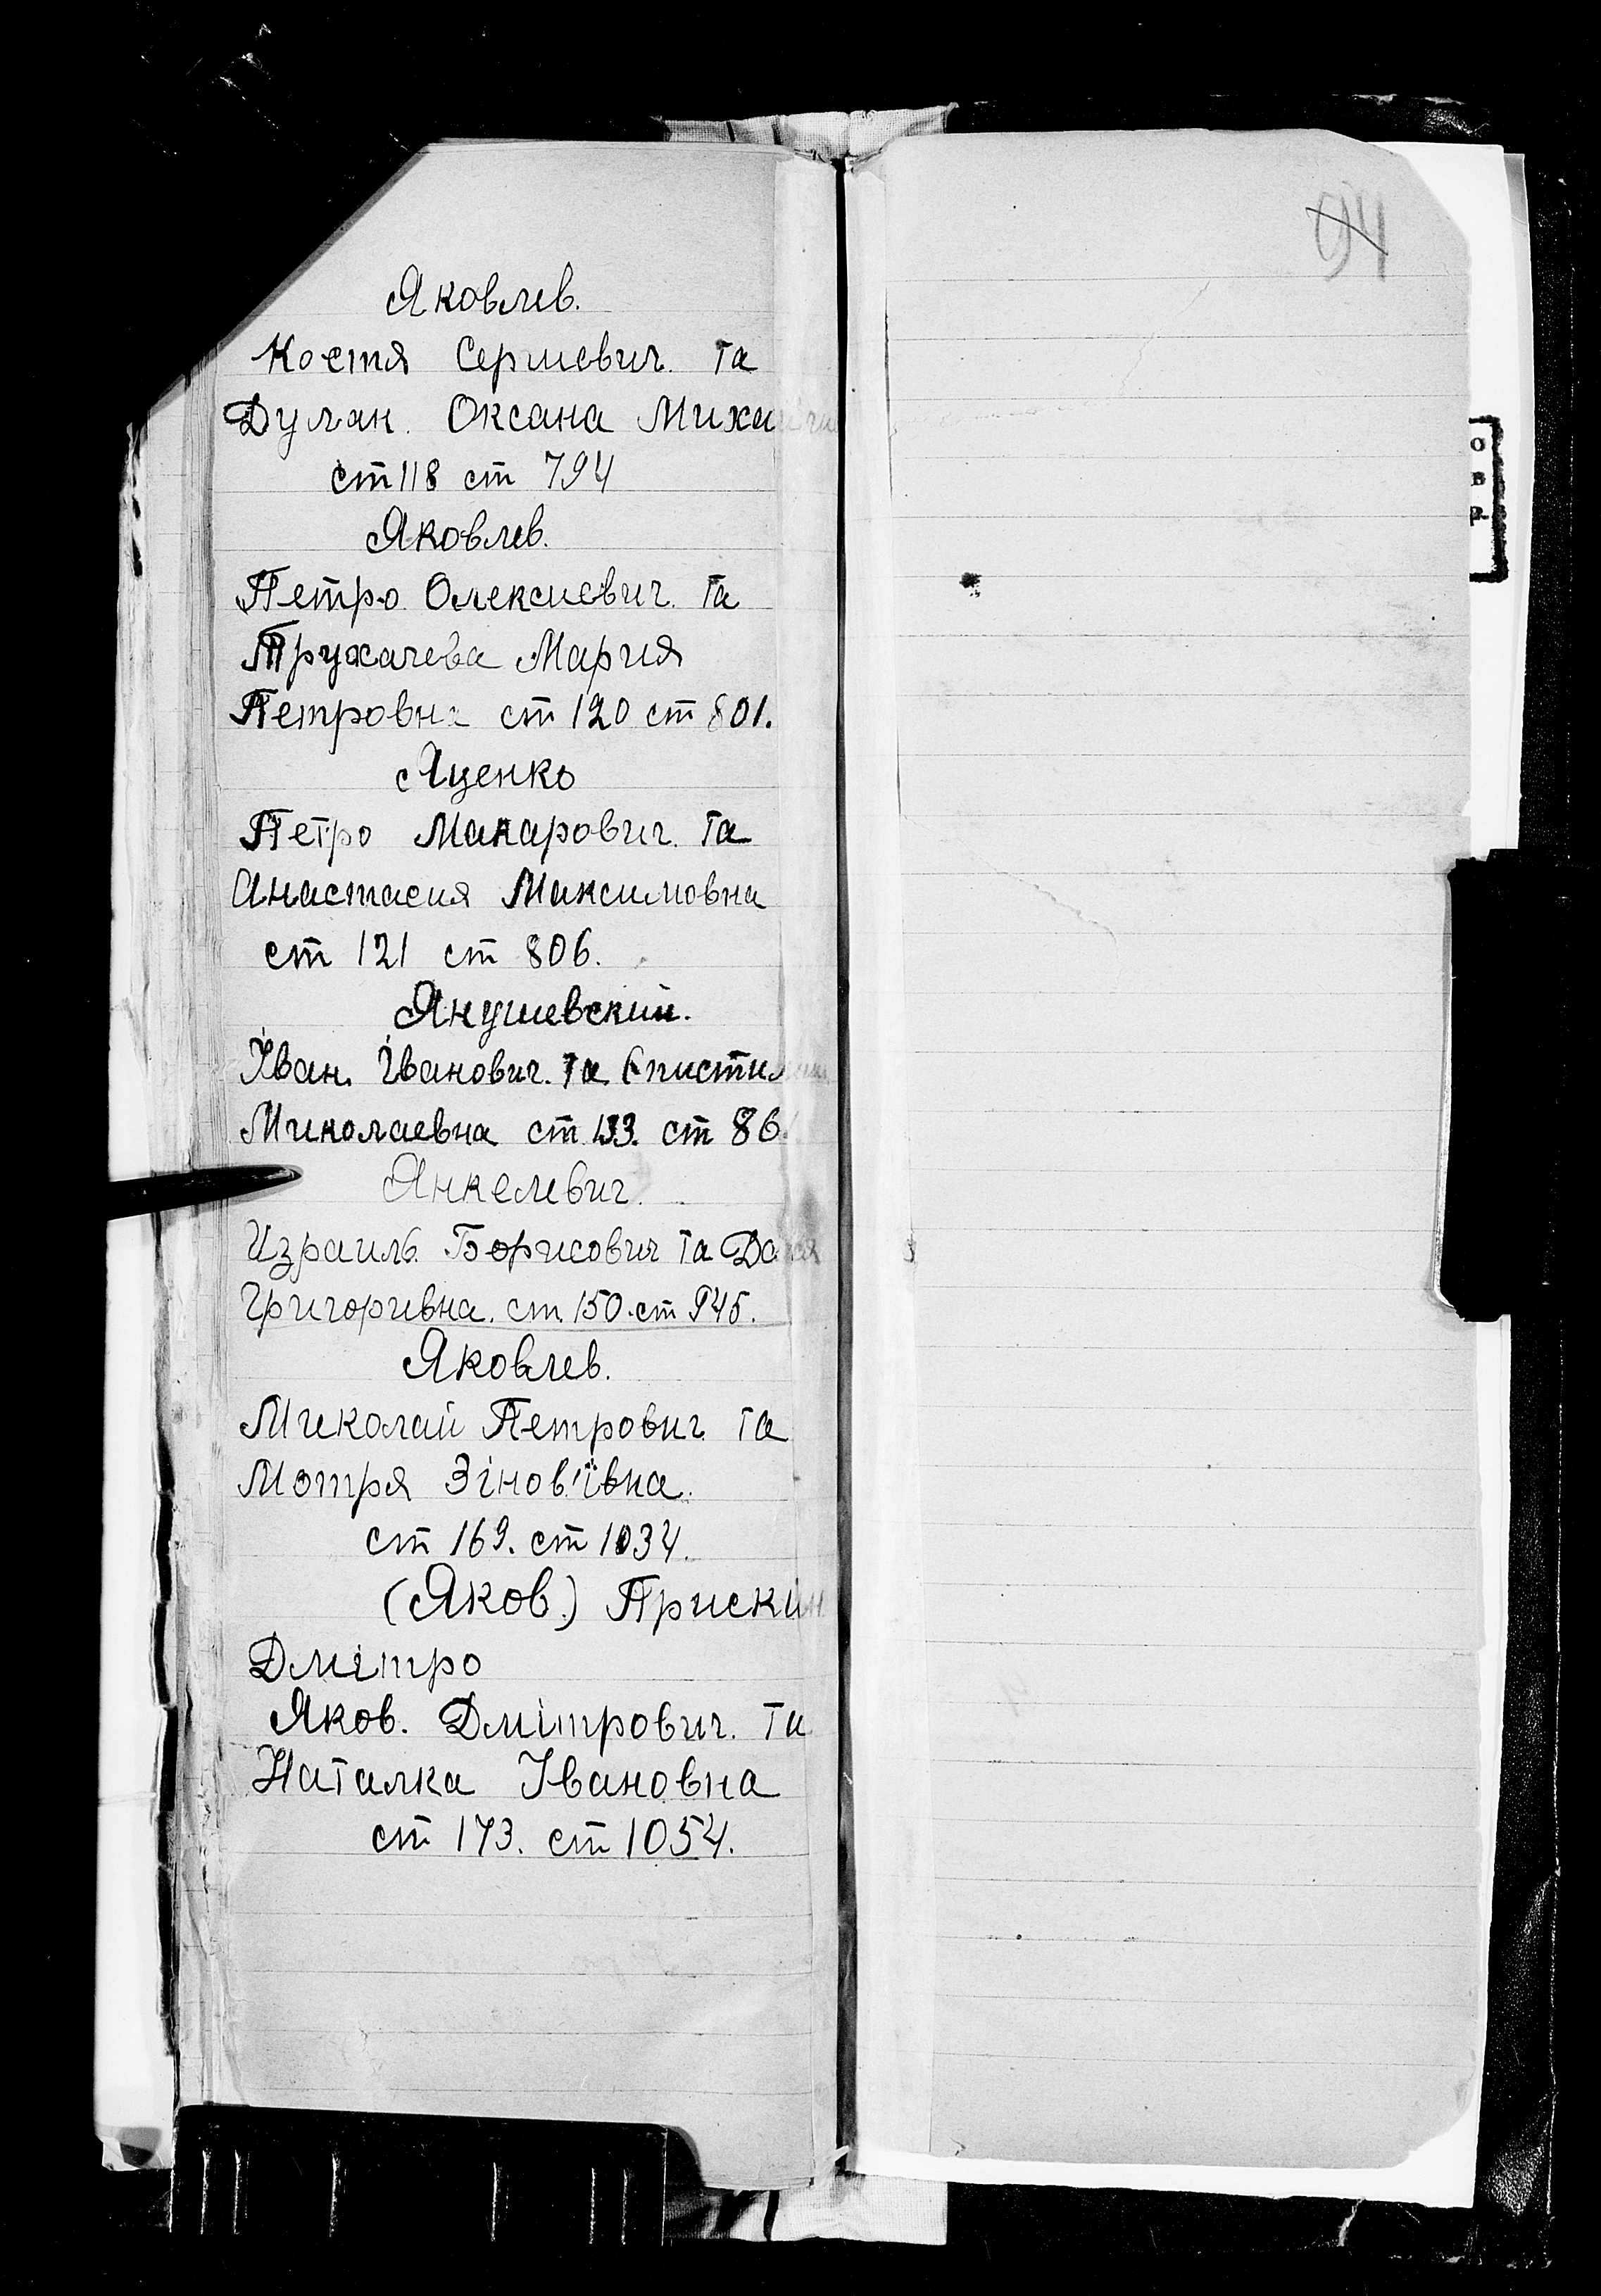 Яковлев.
Костя Сергиевич. та
Дулак. Оксана
ст 118 ст 794
Яковлев.
Петро Олексиевич. та
Трухачева Мария
Петровна ст 120 ст 801.
Яценко
Петро Макарович. та
Анастасия Максимовна
ст 121 ст 806.
Янушевский.
Іван. Іванович. та
Миколаевна ст 133. ст
Янкелевич.
Израиль. Борисович та
Григоривна. ст. 150. ст 945.
Яковлев.
Миколай Петрович та
Мотря Зінов'ївна.
ст 169. ст 1034.
(Яков.) Прискин
Дмітро
Яков. Дмітрович. та
Наталка Івановна
ст 173. ст 1054.
94
О
В
Р